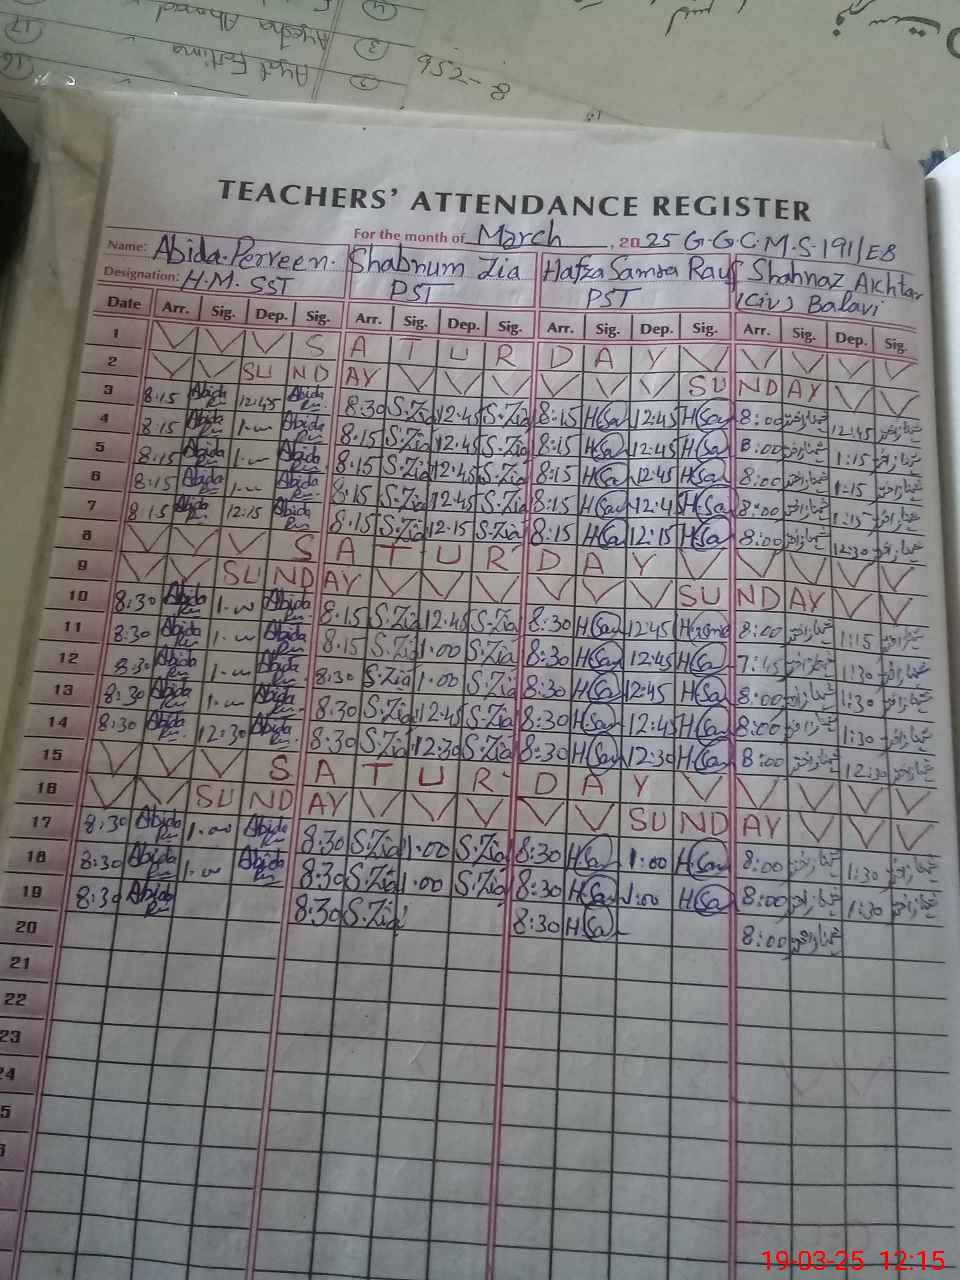 8-256
② Ayat Fatima
③ Ayesha Ahmad
④
⑯
⑰
TEACHERS' ATTENDANCE REGISTER
For the month of March, 2025 G.G.C.M.S-191/EB
Name: Abida Perveen. Shabnum Zia Hafza Samra Rauf Shahnaz Akhtar
Designation: H.M. SST PST PST (Civ) Balavi
Date Arr. Sig. Dep. Sig. Arr. Sig. Dep. Sig. Arr. Sig. Dep. Sig. Arr. Sig. Dep. Sig.
1 S A T U R D A Y
2 SU ND AY SU NDAY
3 8:15 Abida 12:45 Abida 8:30 S.Zia 12:45 S.Zia 8:15 H(Sa 12:45 H(Sa 8:00 12:45
4 8:15 Abida 1:00 Abida 8:15 S.Zia 12:45 S.Zia 8:15 H(Sa 12:45 H(Sa 8:00 1:15
5 8:15 Abida 1:00 Abida 8:15 S.Zia 12:45 S.Zia 8:15 H(Sa 12:45 H(Sa 8:00 1:15
6 8:15 Abida 1:00 Abida 8:15 S.Zia 12:45 S.Zia 8:15 H(Sa 12:45 H(Sa 8:00 1:15
7 8:15 Abida 12:15 Abida 8:15 S.Zia 12:15 S.Zia 8:15 H(Sa 12:15 H(Sa 8:00 12:30
8 S A T U R D A Y
9 SU ND AY SU NDAY
10 8:30 Abida 1:00 Abida 8:15 S.Zia 12:45 S.Zia 8:30 H(Sa 12:45 8:00 1:15
11 8:30 Abida 1:00 Abida 8:15 S.Zia 1:00 S.Zia 8:30 H(Sa 12:45 H(Sa 7:45 1:30
12 8:30 Abida 1:00 Abida 8:30 S.Zia 1:00 S.Zia 8:30 H(Sa 12:45 H(Sa 8:00 1:30
13 8:30 Abida 1:00 Abida 8:30 S.Zia 12:45 S.Zia 8:30 H(Sa 12:45 H(Sa 8:00 1:30
14 8:30 Abida 12:30 Abida 8:30 S.Zia 12:30 S.Zia 8:30 H(Sa 12:30 H(Sa 8:00 12:30
15 S A T U R D A Y
16 SU ND AY SU ND AY
17 8:30 Abida 1:00 Abida 8:30 S.Zia 1:00 S.Zia 8:30 H(Sa 1:00 H(Sa 8:00 1:30
18 8:30 Abida 1:00 Abida 8:30 S.Zia 1:00 S.Zia 8:30 H(Sa 1:00 H(Sa 8:00 1:30
19 8:30 Abida 8:30 S.Zia 8:30 H(Sa 8:00
20
21
22
23
24
19-03-25 12:15